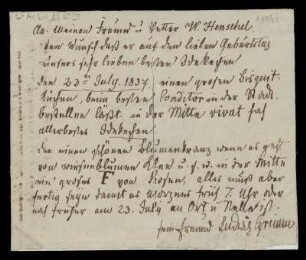 An Meinen Freund u Vetter W. Henschel
den Wunsch daß er auf dem lieben Geburtstag
unsers sehr lieben besten Idekchen
den 23ten July. 1837 einen großen Biscuit
Kuchen, beim besten Conditor in der Stadt
bestellen läßt in der Mitte vivat das
allerbeste Idekchen.
Der einen schönen Blumenkranz wenn es geht
von Wiesenblumen Klee u. s. w. in der Mitte
ein großes F von Rosen, alles muß aber
fertig seyn damit es morgens früh 7. Uhr oder
noch früher am 23. July an Ort u Stelle ist.
sein Freund Ludwig Grimm